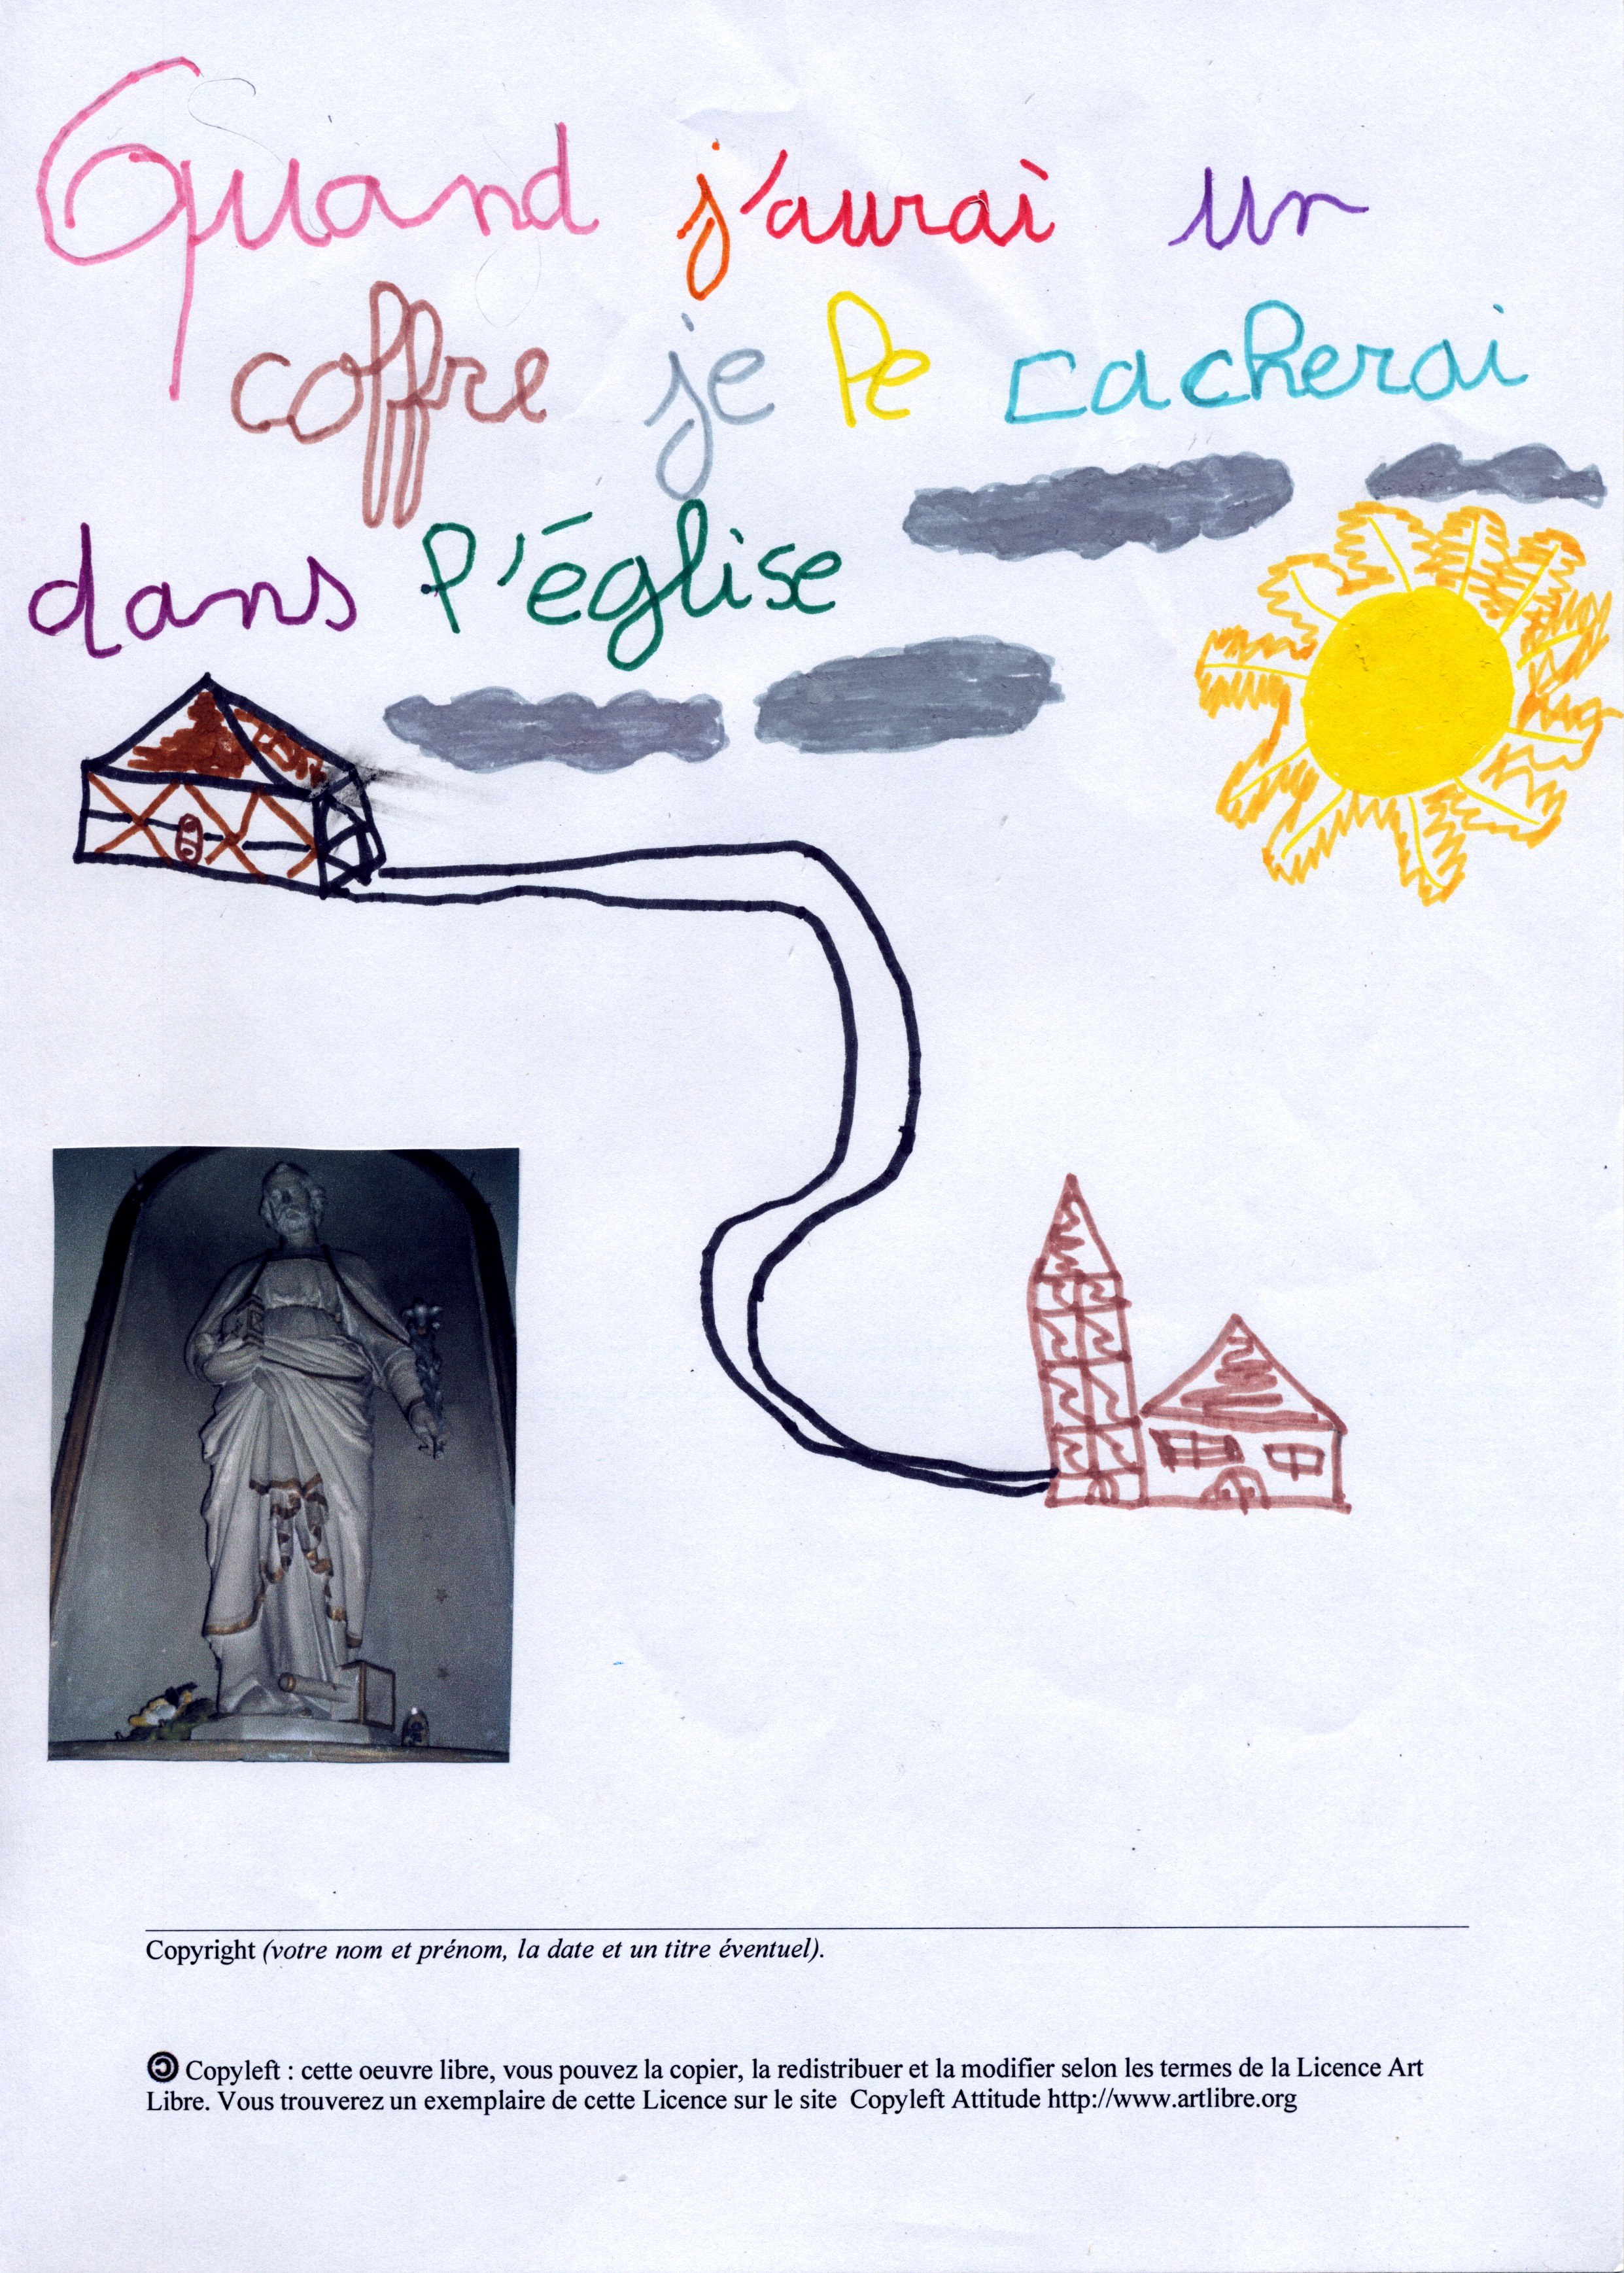 Quand j'aurai un
coffre je le cacherai
dans l'église
Copyright (votre nom et prénom, la date et un titre éventuel).
Copyleft : cette oeuvre libre, vous pouvez la copier, la redistribuer et la modifier selon les termes de la Licence Art
Libre. Vous trouverez un exemplaire de cette Licence sur le site Copyleft Attitude http://www.artlibre.org